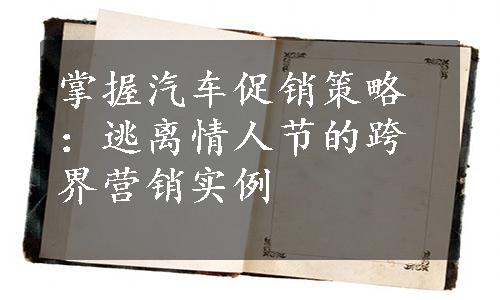 掌握汽车促销策略
：逃离情人节的跨
界营销实例